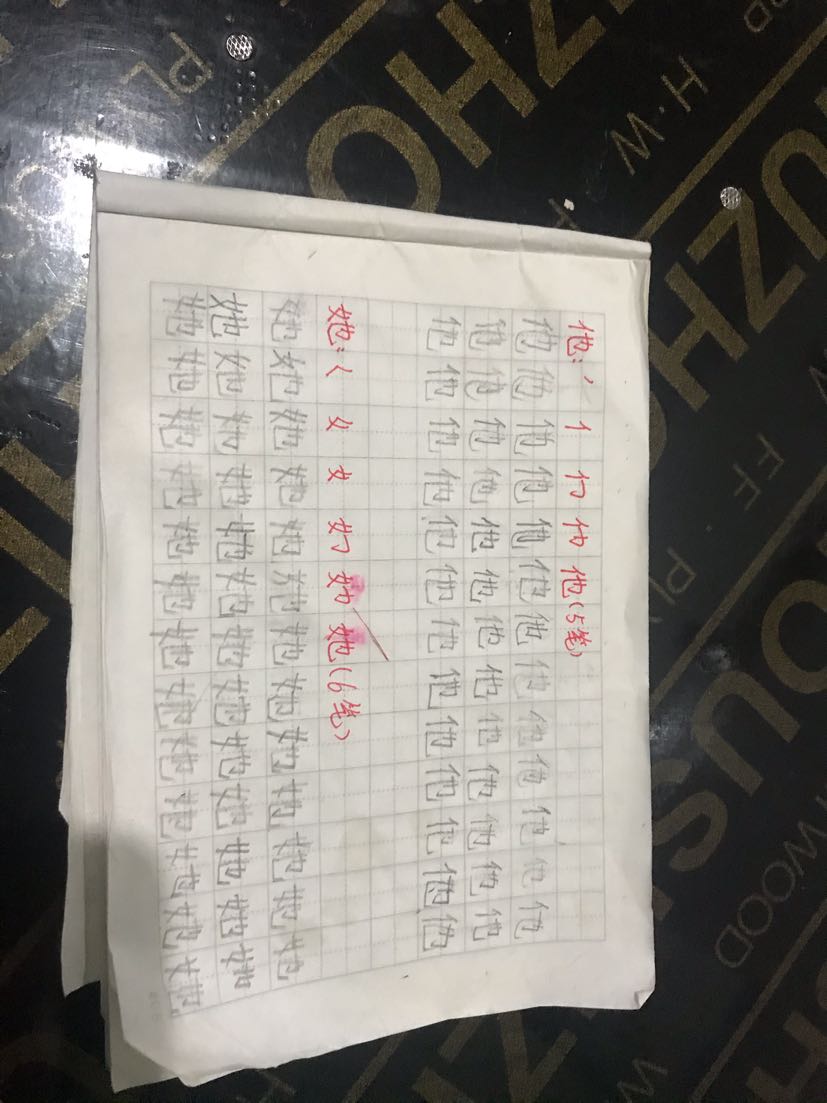 他：丿 亻 他（5笔）
他他他他他他他他他他他他他
他他他他他他他他他他他他他
他他他他他他他他他他他他他
她：く 女 她（6笔）
她她她她她她她她她她她她她
她她她她她她她她她她她她她
她她她她她她她她她她她她她
H·W
WOOD